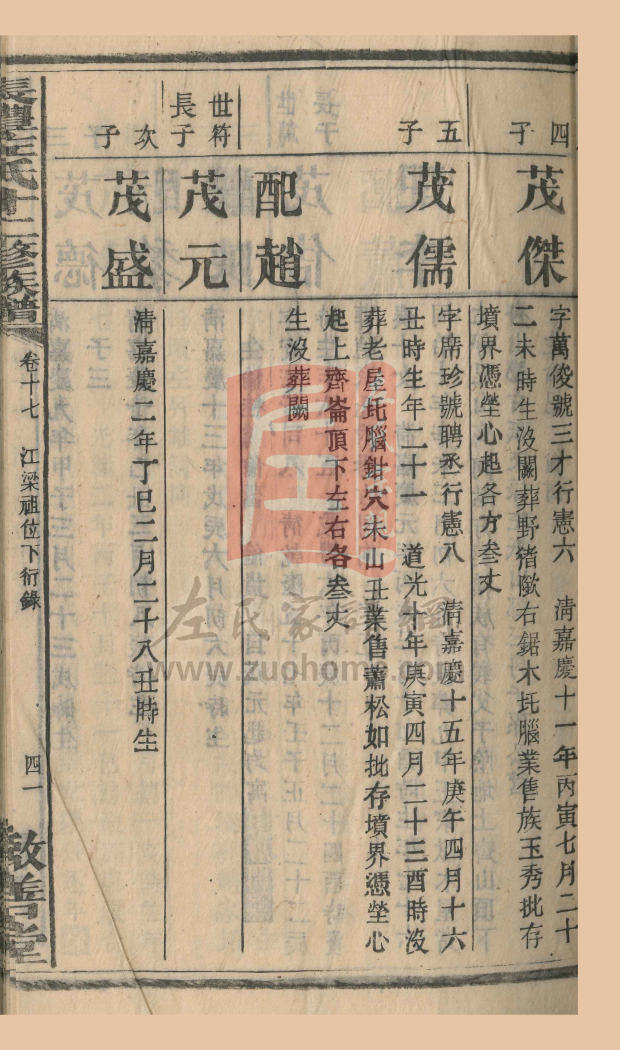 四子
茂傑
字萬俊號三才行憲六　清嘉慶十一年丙寅七月二十
二未時生沒闕葬野猪歐右鋸木圫腦業售族玉秀批存
墳界憑塋心起各方叁丈
五子
茂儒
字席珍號聘丞行憲八　清嘉慶十五年庚午四月十六
丑時生年二十一　道光十年庚寅四月二十三酉時沒
葬老屋圫腦鉗穴未山丑業售蕭松如批存墳界憑塋心
起上齊崙頂下左右各叁丈
配趙
生沒葬闕
世符長子
茂元
次子
茂盛
清嘉慶二年丁巳二月二十八丑時生
長豐左氏十二修族譜
卷十七　江梁祖位下衍錄
四一
敬善堂
左氏家譜網
www.zuohome.com